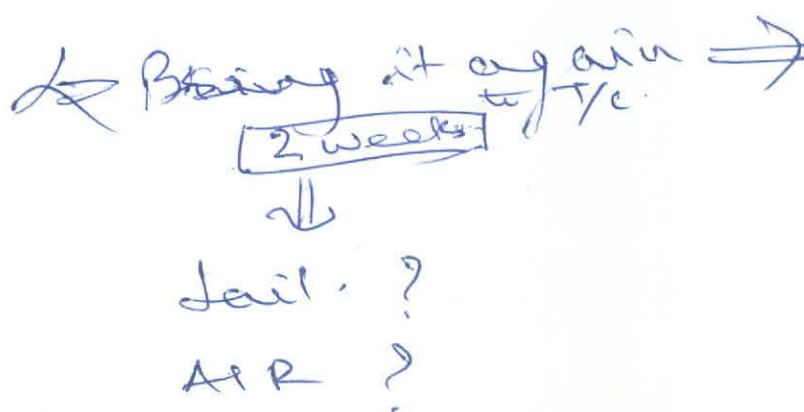 ↳ Bring it again ⇒
to T/C.
2 weeks
⇓
Jail. ?
AIR ?